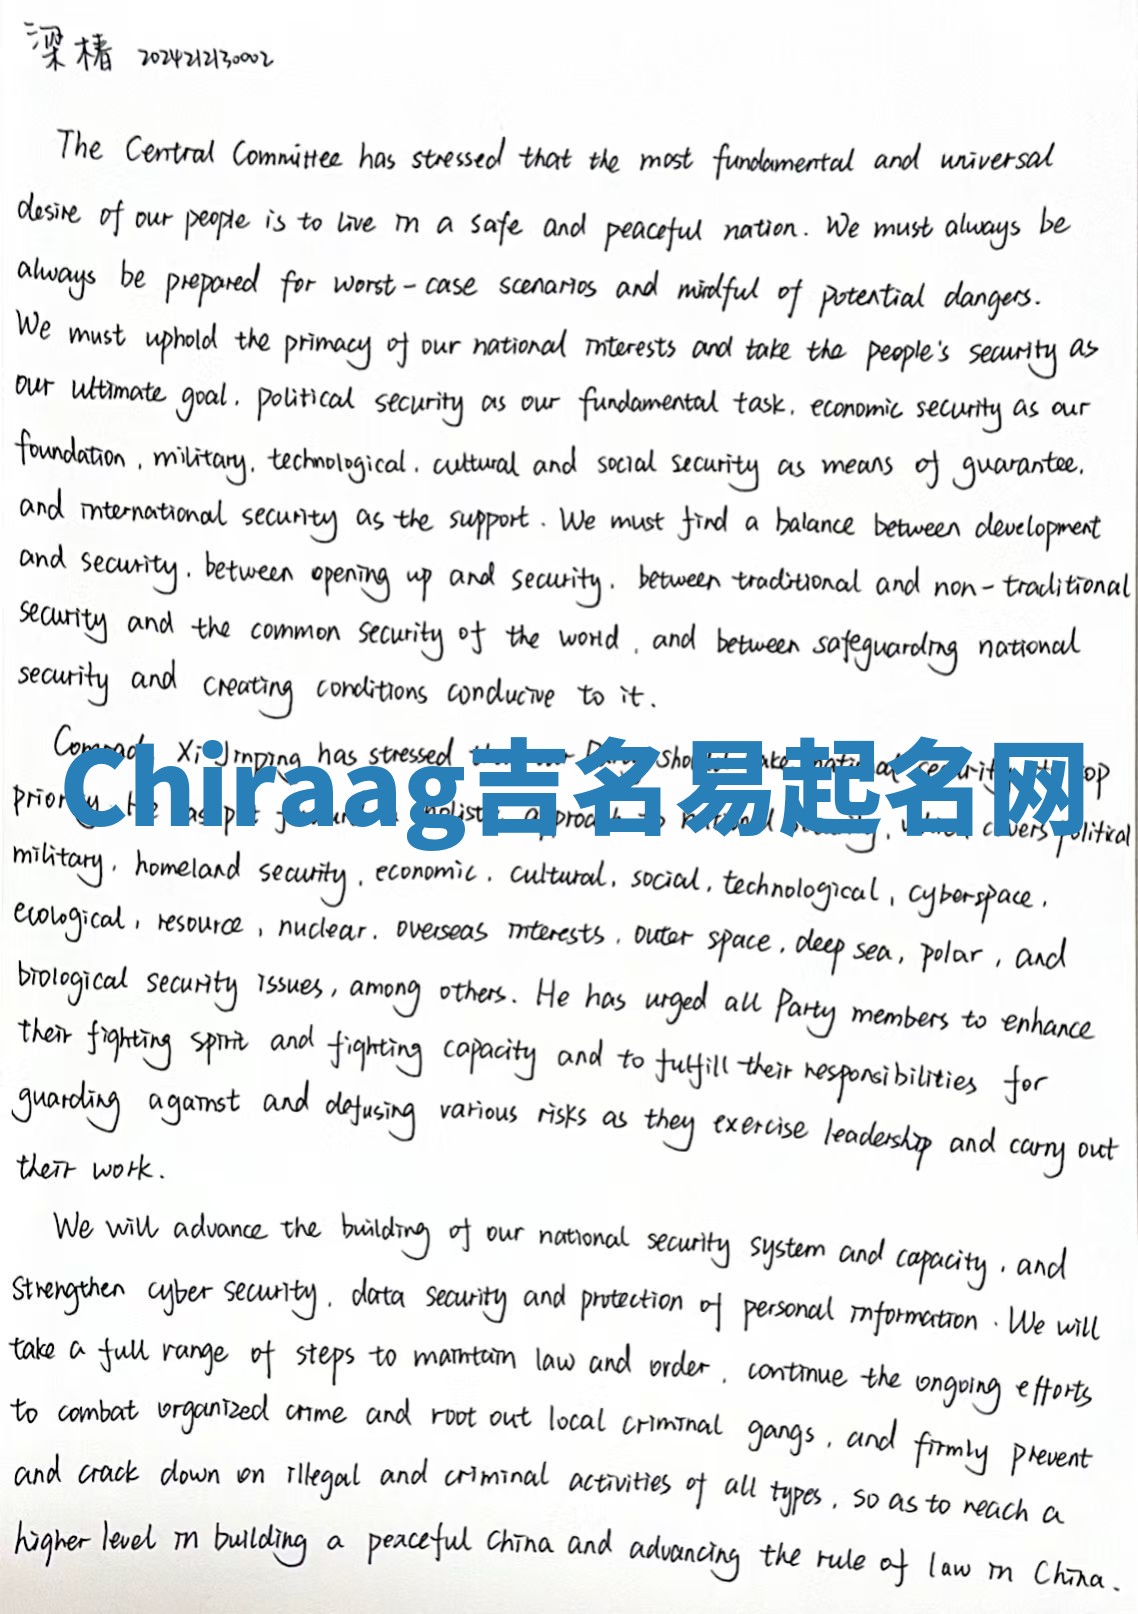 梁椿 2024212130002
The Central Committee has stressed that the most fundamental and universal
desire of our people is to live in a safe and peaceful nation. We must always be
always be prepared for worst-case scenarios and mindful of potential dangers.
We must uphold the primacy of our national interests and take the people's security as
our ultimate goal, political security as our fundamental task, economic security as our
foundation, military, technological, cultural and social security as means of guarantee,
and international security as the support. We must find a balance between development
and security, between opening up and security, between traditional and non-traditional
security and the common security of the world, and between safeguarding national
security and creating conditions conducive to it.
Xi Jinping has stressed
Chiraag吉名易起名网
covers political
military, homeland security, economic, cultural, social, technological, cyberspace,
ecological, resource, nuclear, overseas interests, outer space, deep sea, polar, and
biological security issues, among others. He has urged all Party members to enhance
their fighting spirit and fighting capacity and to fulfill their responsibilities for
guarding against and defusing various risks as they exercise leadership and carry out
their work.
We will advance the building of our national security system and capacity, and
strengthen cyber security, data security and protection of personal information. We will
take a full range of steps to maintain law and order, continue the ongoing efforts
to combat organized crime and root out local criminal gangs, and firmly prevent
and crack down on illegal and criminal activities of all types, so as to reach a
higher level in building a peaceful China and advancing the rule of law in China.